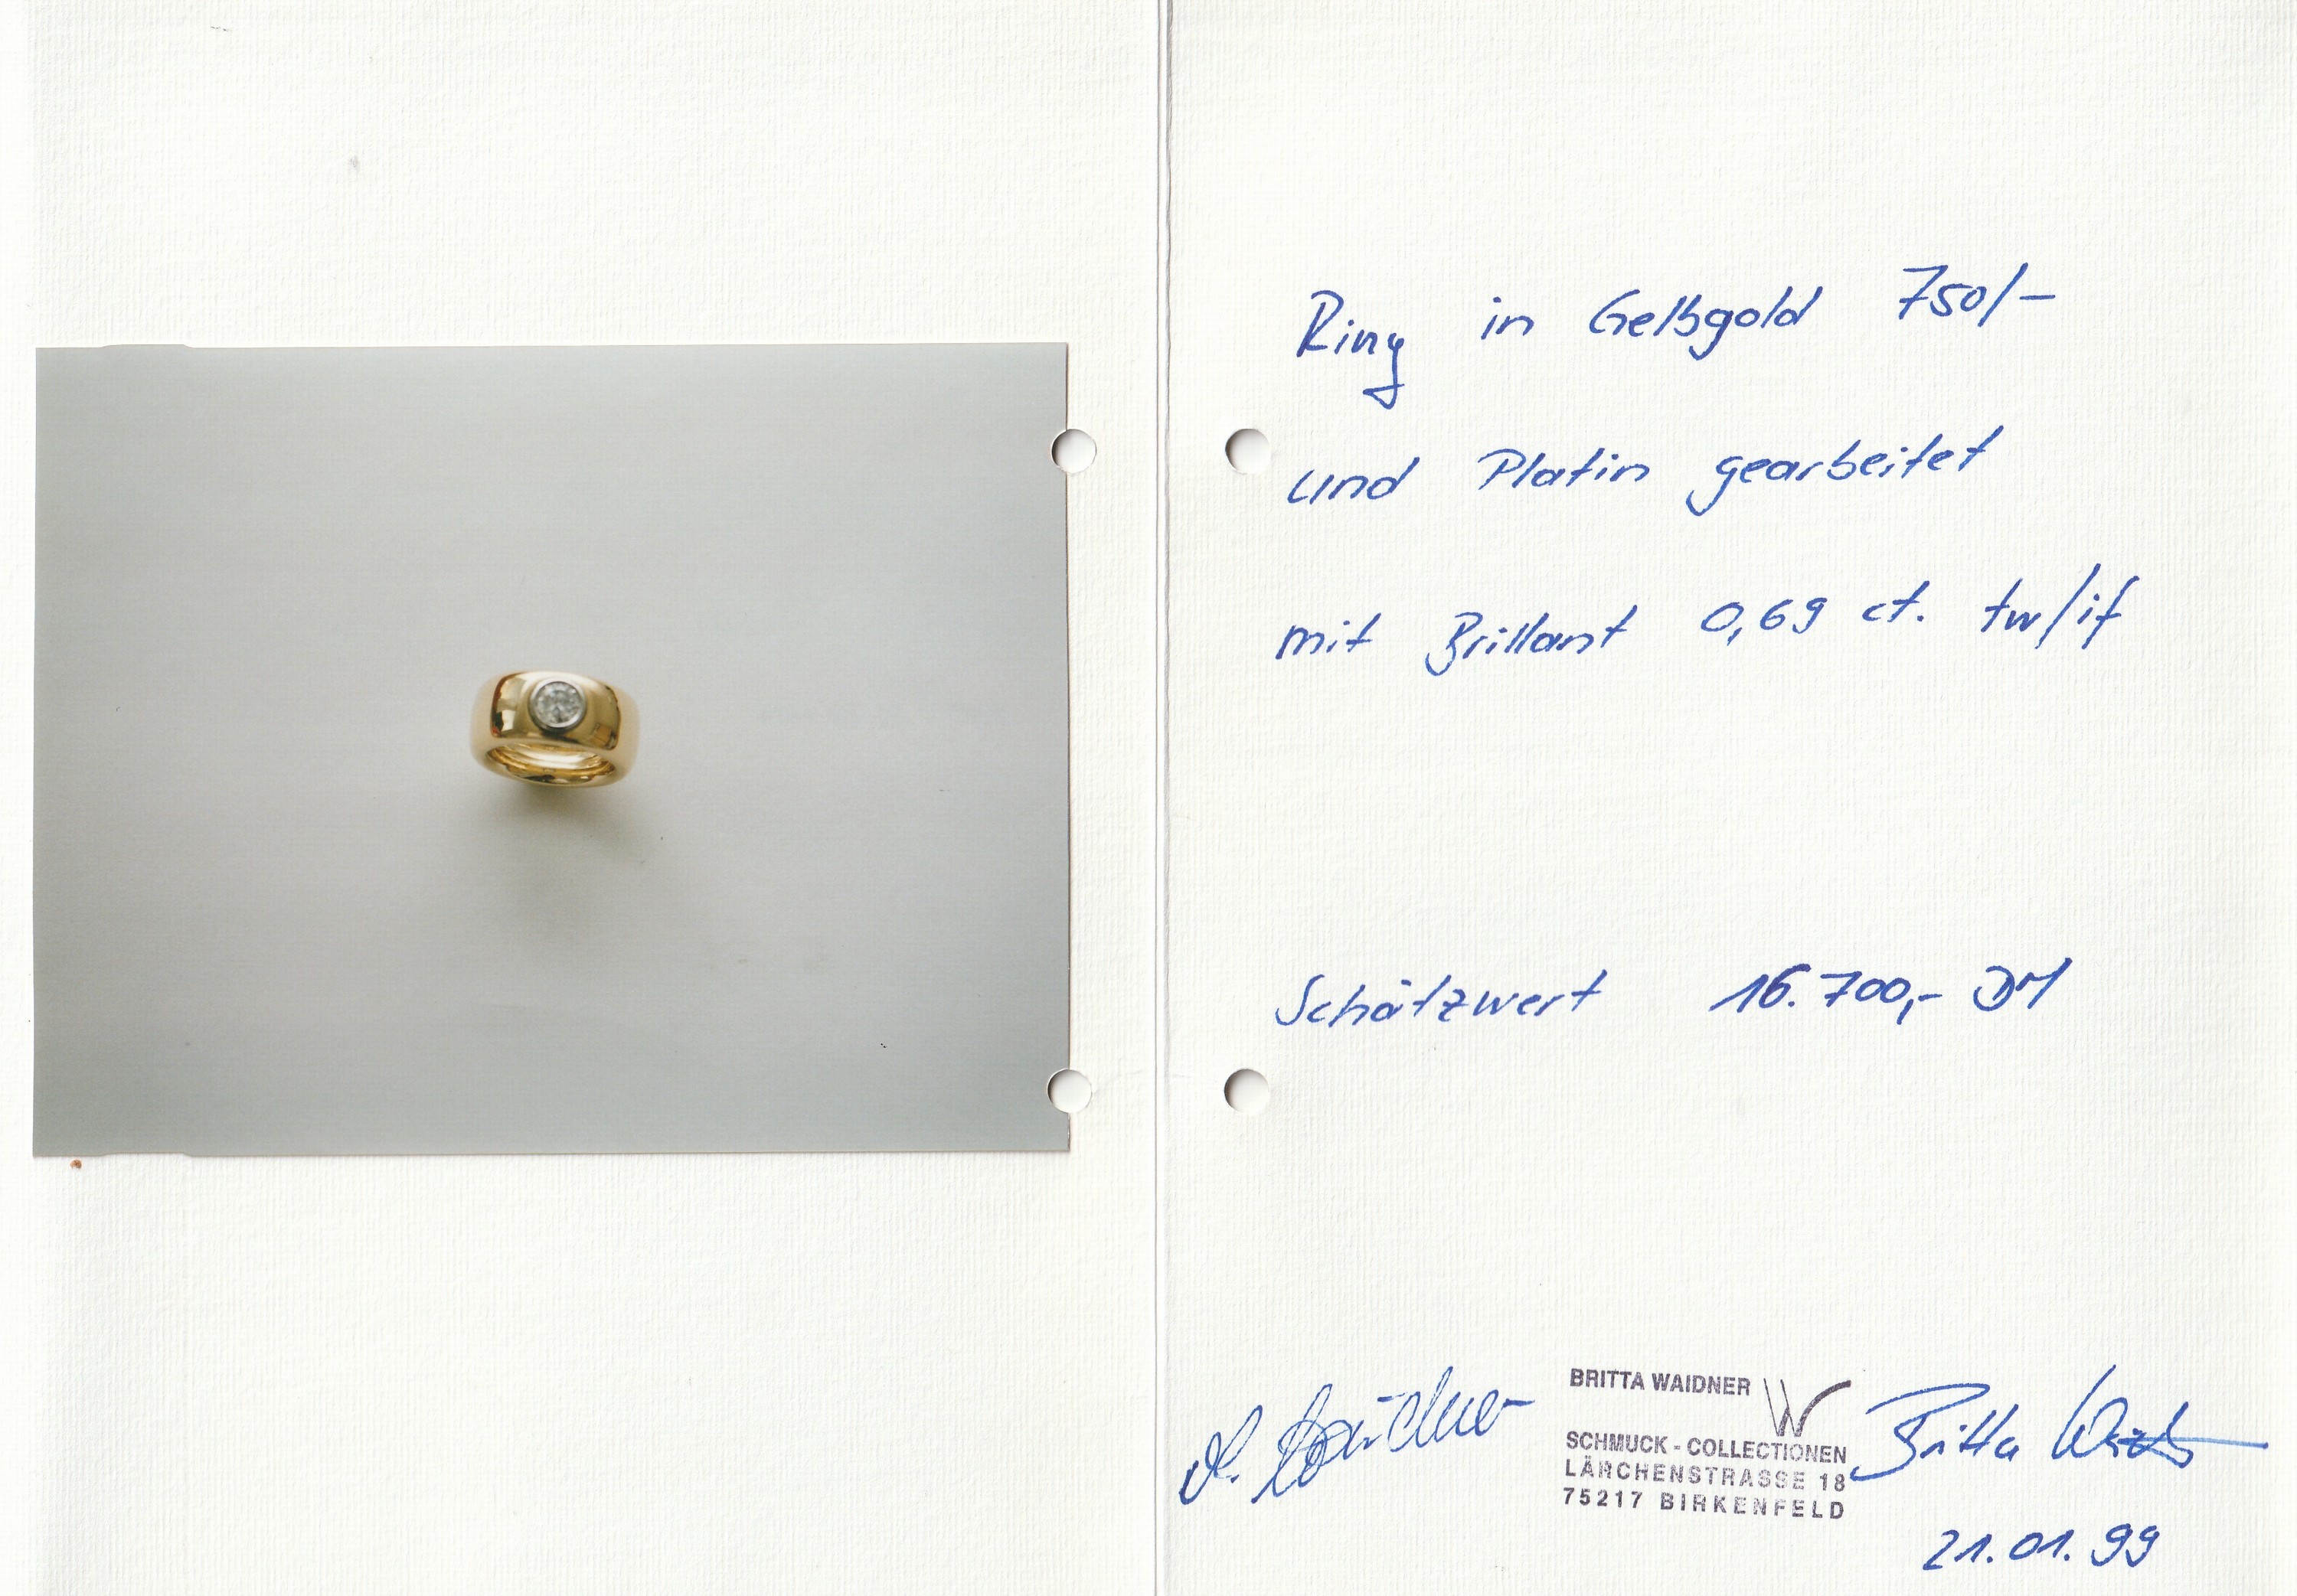 Ring in Gelbgold 750/-
und Platin gearbeitet
mit Brillant 0,69 ct. tw/if
Schätzwert 16.700,- DM
BRITTA WAIDNER
SCHMUCK - COLLECTIONEN
LÄRCHENSTRASSE 18
75217 BIRKENFELD
Britta
21.01.99